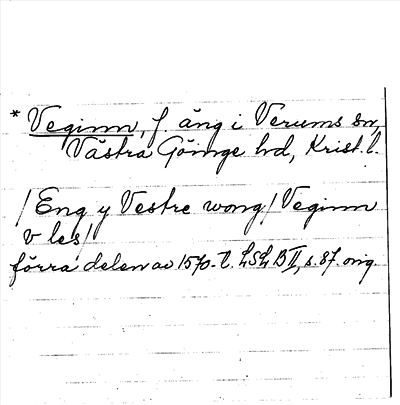 * Veginn, f. äng i Verums sn,
Västra Göinge hd, Krist. l.
/ Eng y Vestre wong / Veginn
v les /
förra delen av 1570-t. LSL B II, s. 87. orig.